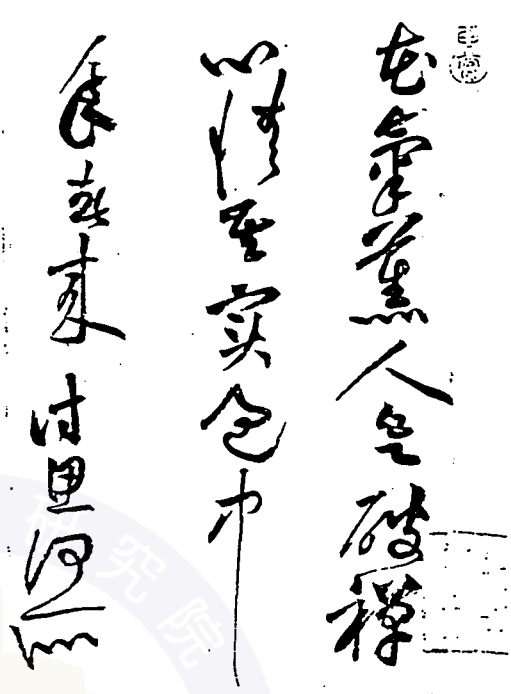 花氣薰人欲破禪
心情其實過中
年春來詩思何所
研究院